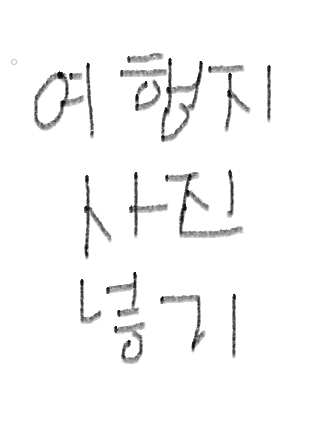 여행지
사진
넣기